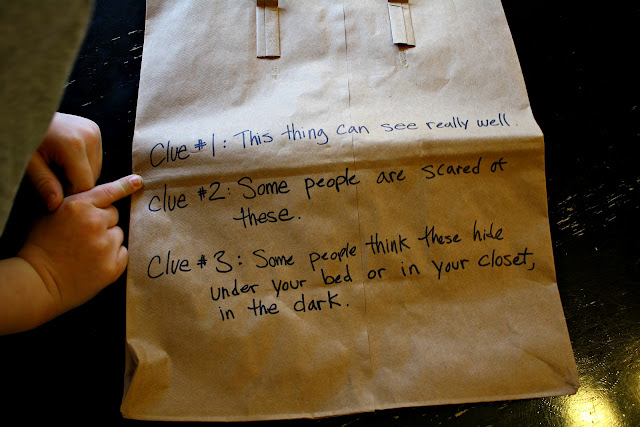 Clue #1: This thing can see really well.
Clue #2: Some people are scared of
these.
Clue #3: Some people think these hide
under your bed or in your closet,
in the dark.